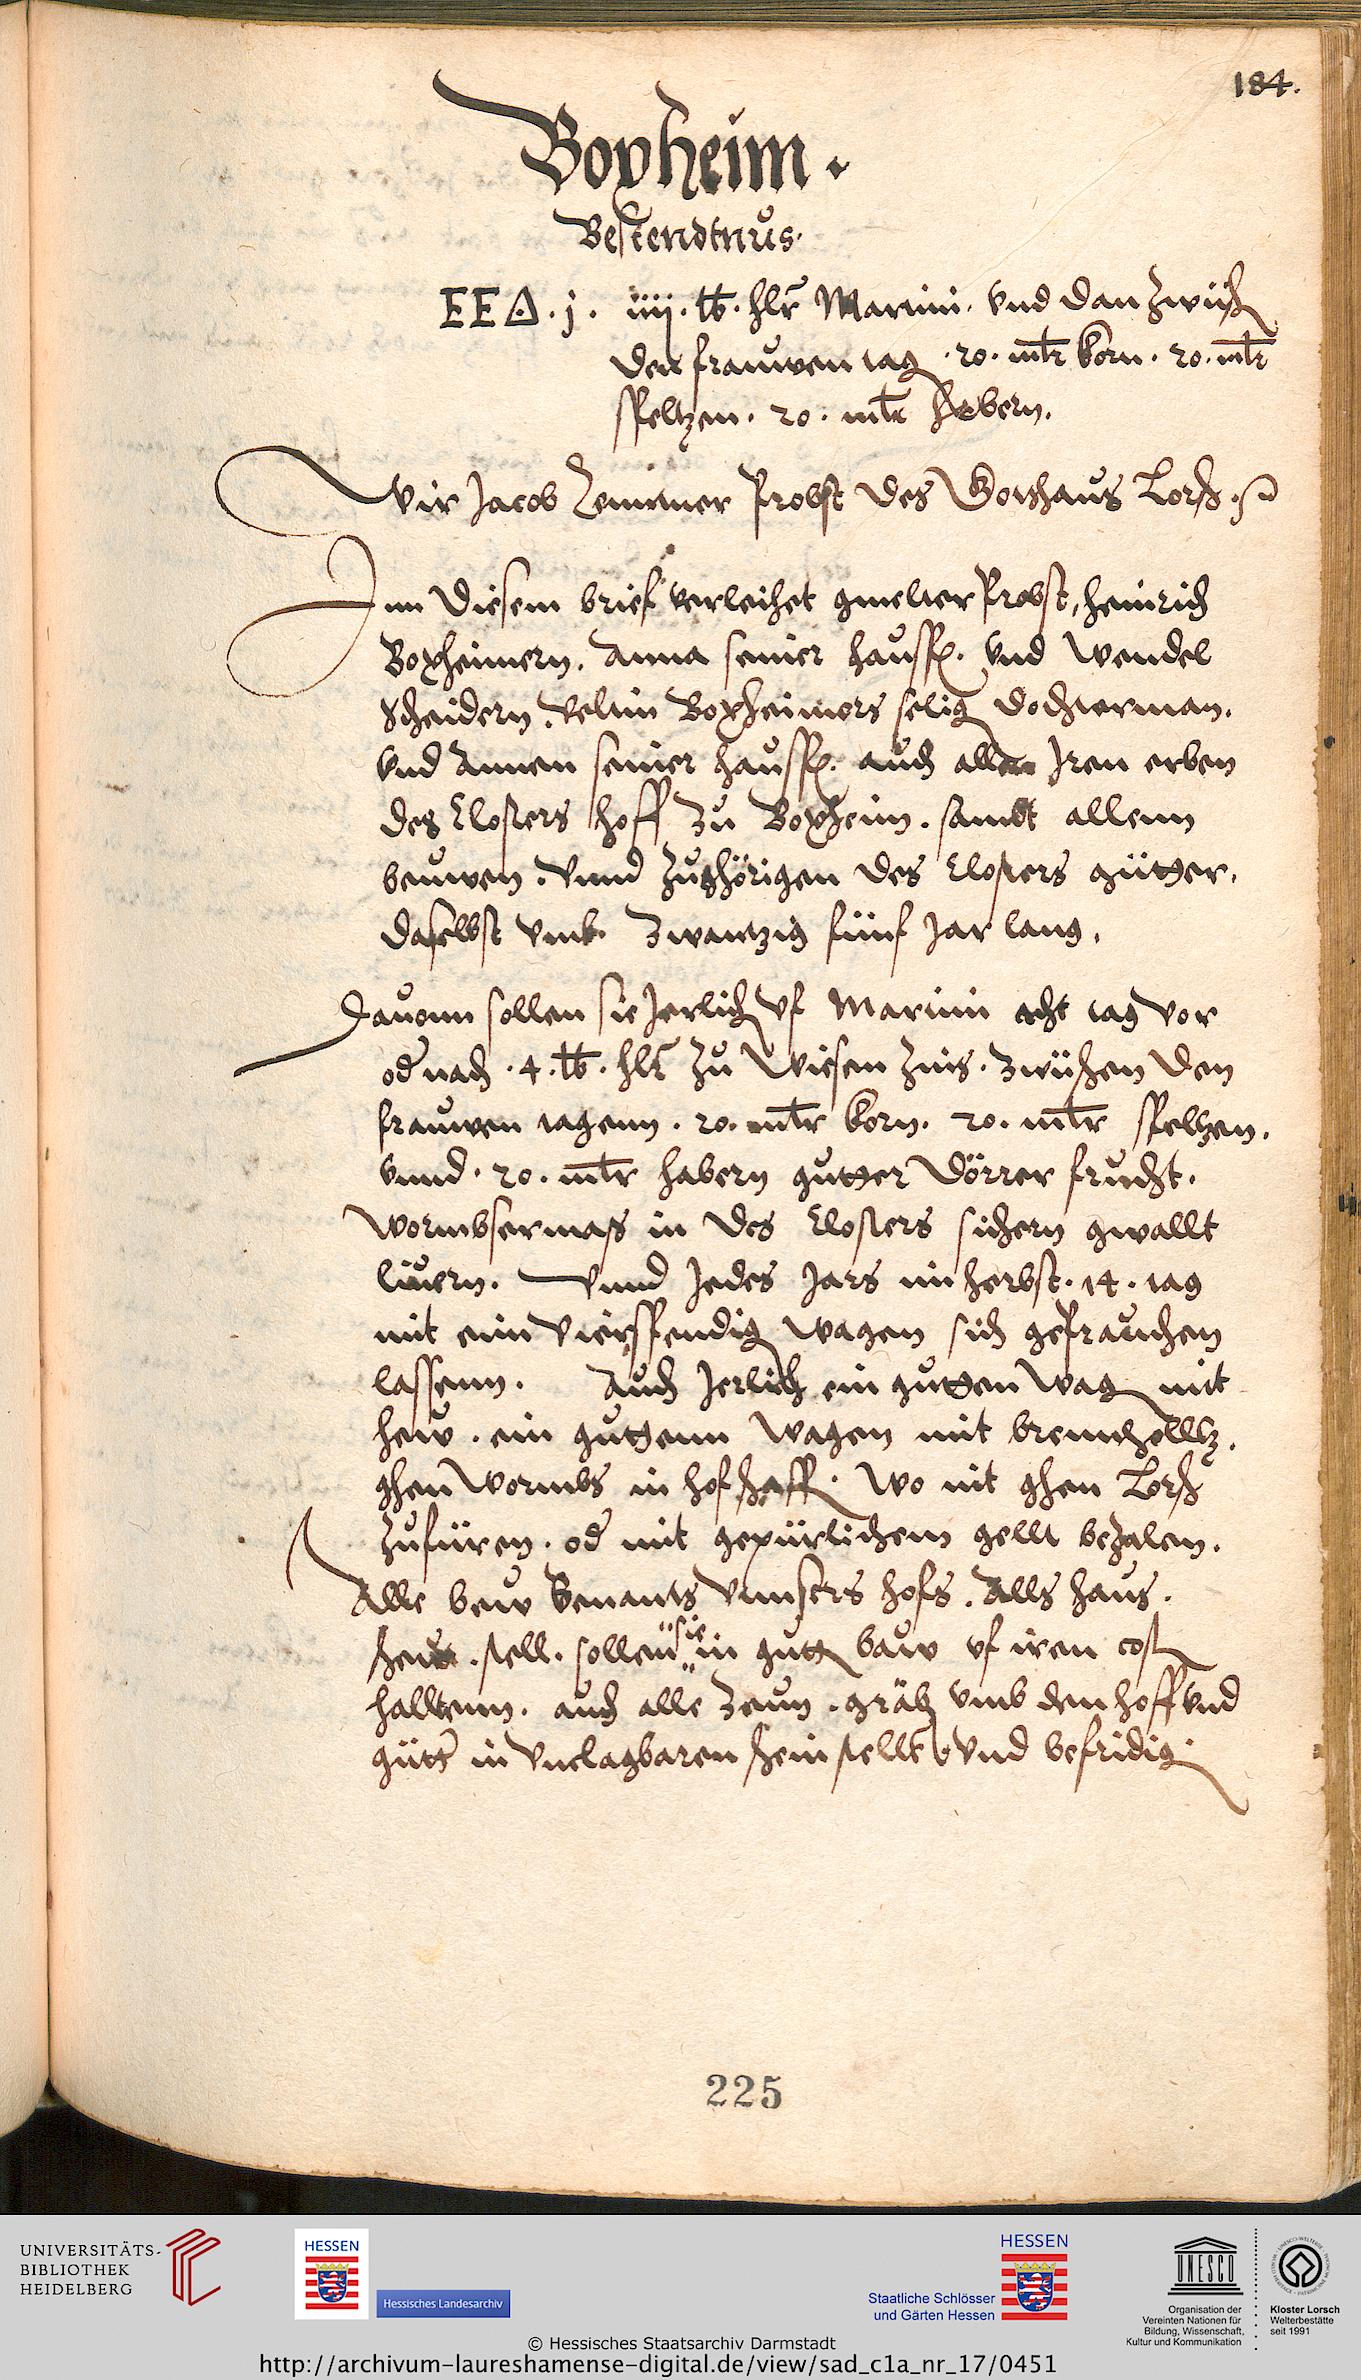 184.
Boxheim.
Bestendtnus.
EE△. j. iiij. lb. hlr Martini. vnd dan zwüsch
den frauwen tag. 20. mltr korn. 20. mltr
speltzen. 20. mltr habern.
Wir Jacob Zentner Probst des Gotshaus Lorsch.
Inn diesem brief verleihet gmelter Probst, heinrich
Boxheimern. Anna seiner hausf. vnd Wendel
Scheidern. Veltin Boxheimers selig dochterman.
vnd Annen seiner hausf. auch allen Iren erben
des Closters hoff zu Boxheim. sambt allenn
beuwen. vnnd zughörigen des Closters gütter.
daselbst vmb. zwantzig fünf Jar lang.
Dauonn sollen sie Jerlich vf Martini acht tag vor
od nach. 4. lb. hlr zu Wiesen zins. zwüschen den
frauwen tagenn. 20. mltr korn. 20. mltr speltzen.
vnnd. 20. mltr habern gutter dörrer frucht.
Wormbsermass in des Closters sichern gwallt
liuern. Vnnd Jedes Jars im herbst. 14. tag
mit eim vierpfendig wagen sich geprauchen
lassenn. Auch Jerlich ein gutten wag mit
hew. ein guttenn Wagen mit brennhölltz.
ghen Wormbs in hof schaff. Wo nit ghen Lorsch
zufüren. od mit gepürlichem gellt bezalen.
Alle bew benants vnnsers hofs. Alls haus.
scheu. stell. sollen sie in gutt bauw vf iren cost
halltenn. auch alle zeun. gräb vmb den hoff vnd
gütt in vnclagbaren schein stellt vnd befridig.
225
UNIVERSITÄTS-
BIBLIOTHEK
HEIDELBERG
HESSEN
Hessisches Landesarchiv
HESSEN
Staatliche Schlösser
und Gärten Hessen
UNESCO
Organisation der
Vereinten Nationen für
Bildung, Wissenschaft,
Kultur und Kommunikation
Kloster Lorsch
Welterbestätte
seit 1991
© Hessisches Staatsarchiv Darmstadt
http://archivum-laureshamense-digital.de/view/sad_c1a_nr_17/0451